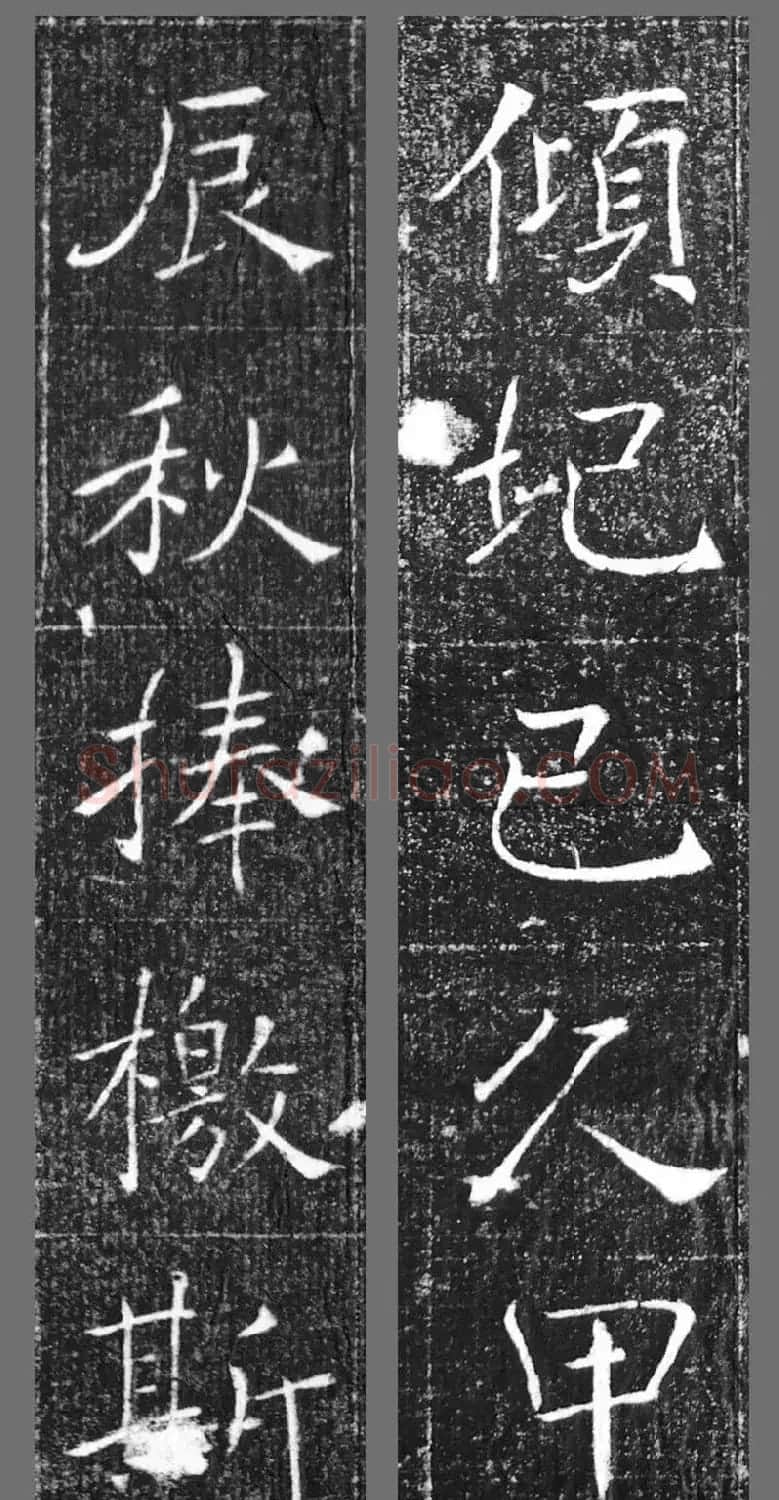 傾圮已久甲
辰秋捧檄斯
Shufaziliao.COM